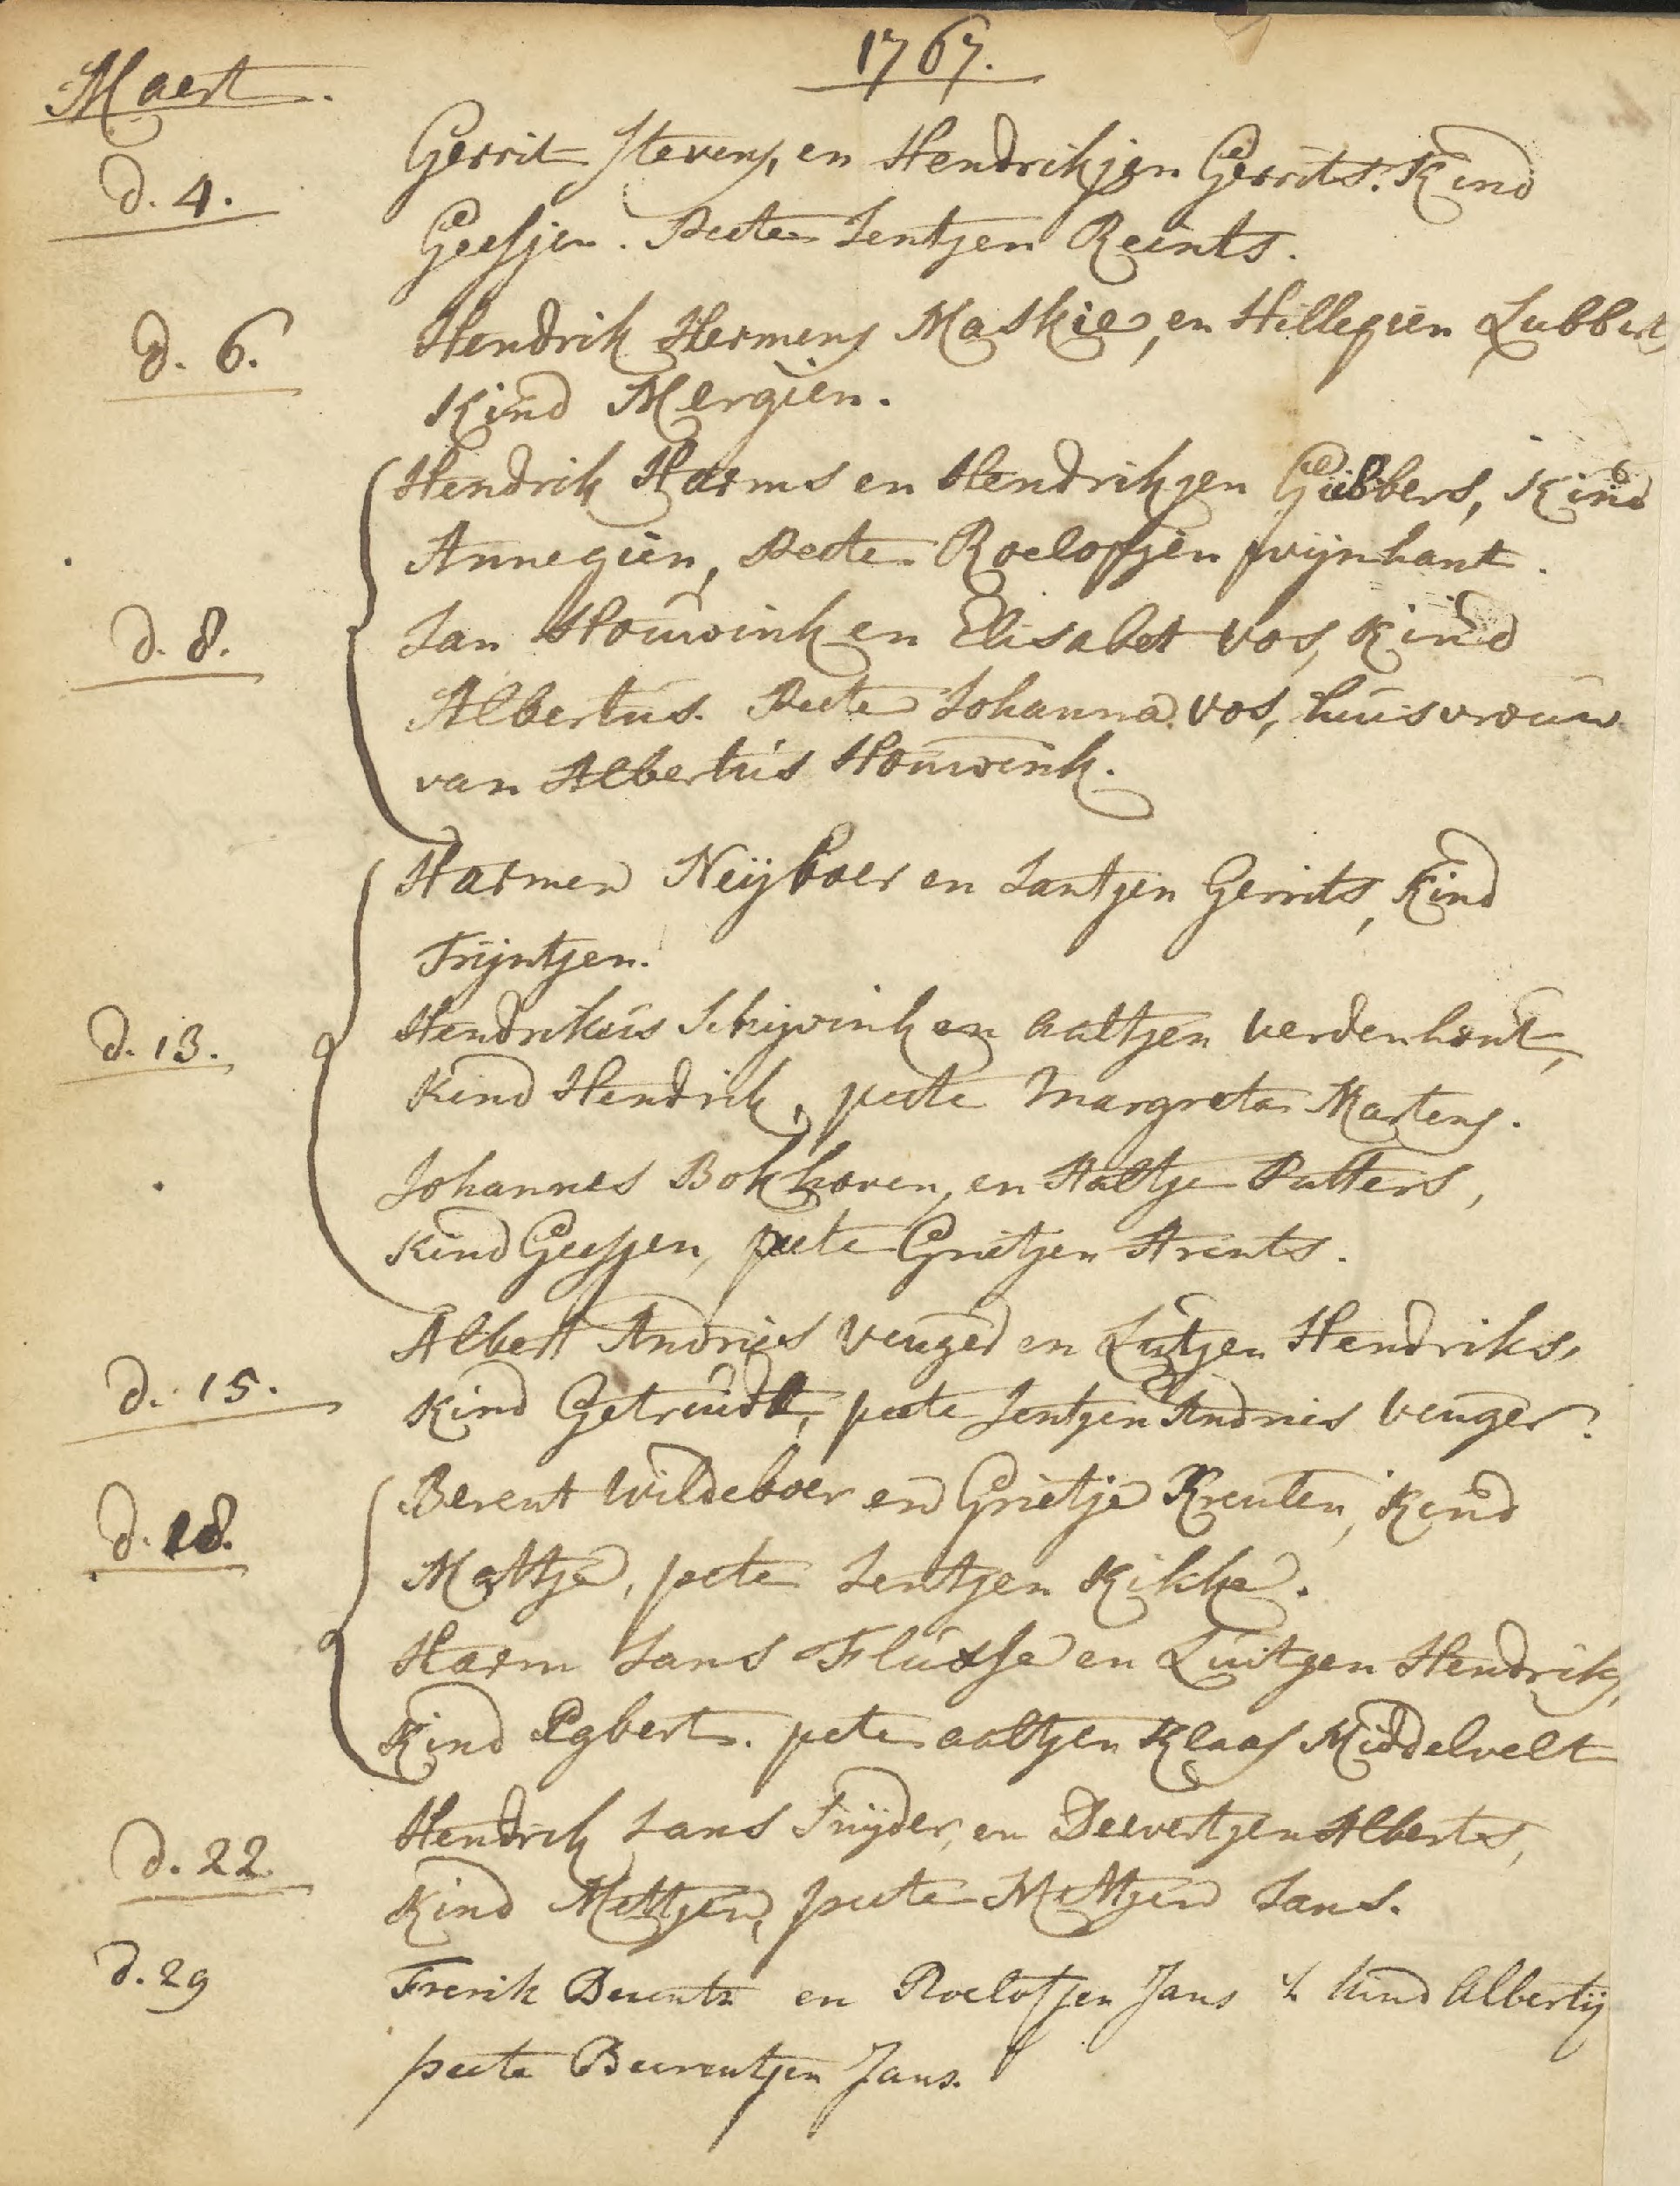 1767.
Maert.
d. 4.
Gerrit Stevens, en Hendrikjen Gerrits. Kind
Geesjen. Peete Jentjen Reints.
d. 6.
Hendrik Hermens Maskie, en Hillegien Lubberts,
Kind Mergien.
Hendrik Harms en Hendrikjen Gübbers, Kind
Annegien, Peete Roelofjen Wijnhant.
d. 8.
Jan Houwink en Elisabet Vos, Kind
Albertus. Peete Johanna Vos, huisvrouw
van Albertus Houwink.
Harmen Neijboer en Jantjen Gerrits, Kind
Trijntjen.
d. 13.
Hendrikus Schijvink en Aaltjen Verdenhout,
Kind Hendrik, peete Margreta Martens.
Johannes Bokhoven, en Aaltje Putters,
Kind Geesjen, peete Grietjen Arents.
d. 15.
Albert Andries Venger en Lutjen Hendriks,
Kind Getruidt, peete Jentjen Andries Venger.
d. 18.
Berent Wildeboer en Grietje Kreulen, Kind
Mattje, peete Jentjen Kikke.
Harm Jans Flusse en Luitjen Hendriks,
Kind Egbert. pete Aaltjen Klaas Middelvelt
d. 22.
Hendrik Jans Snijder, en Deevertjen Alberts,
Kind Mettjen, peete Mettjen Jans.
d. 29
Frerik Beents en Roelofjen Jans 't Kind Albertij
peete Beerentjen Jans.